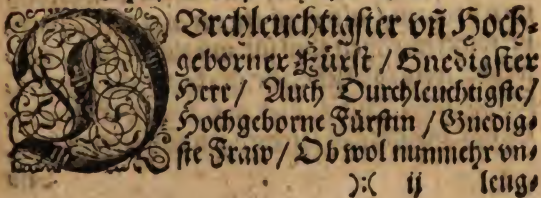 DVrchleuchtigster vñ Hoch⸗
geborner Fürst / Gnedigster
Herr / Auch Durchleuchtigste/
Hochgeborne Fürstin / Gnedig⸗
ste Fraw / Ob wol nunmehr vn⸗
):( ij leug⸗